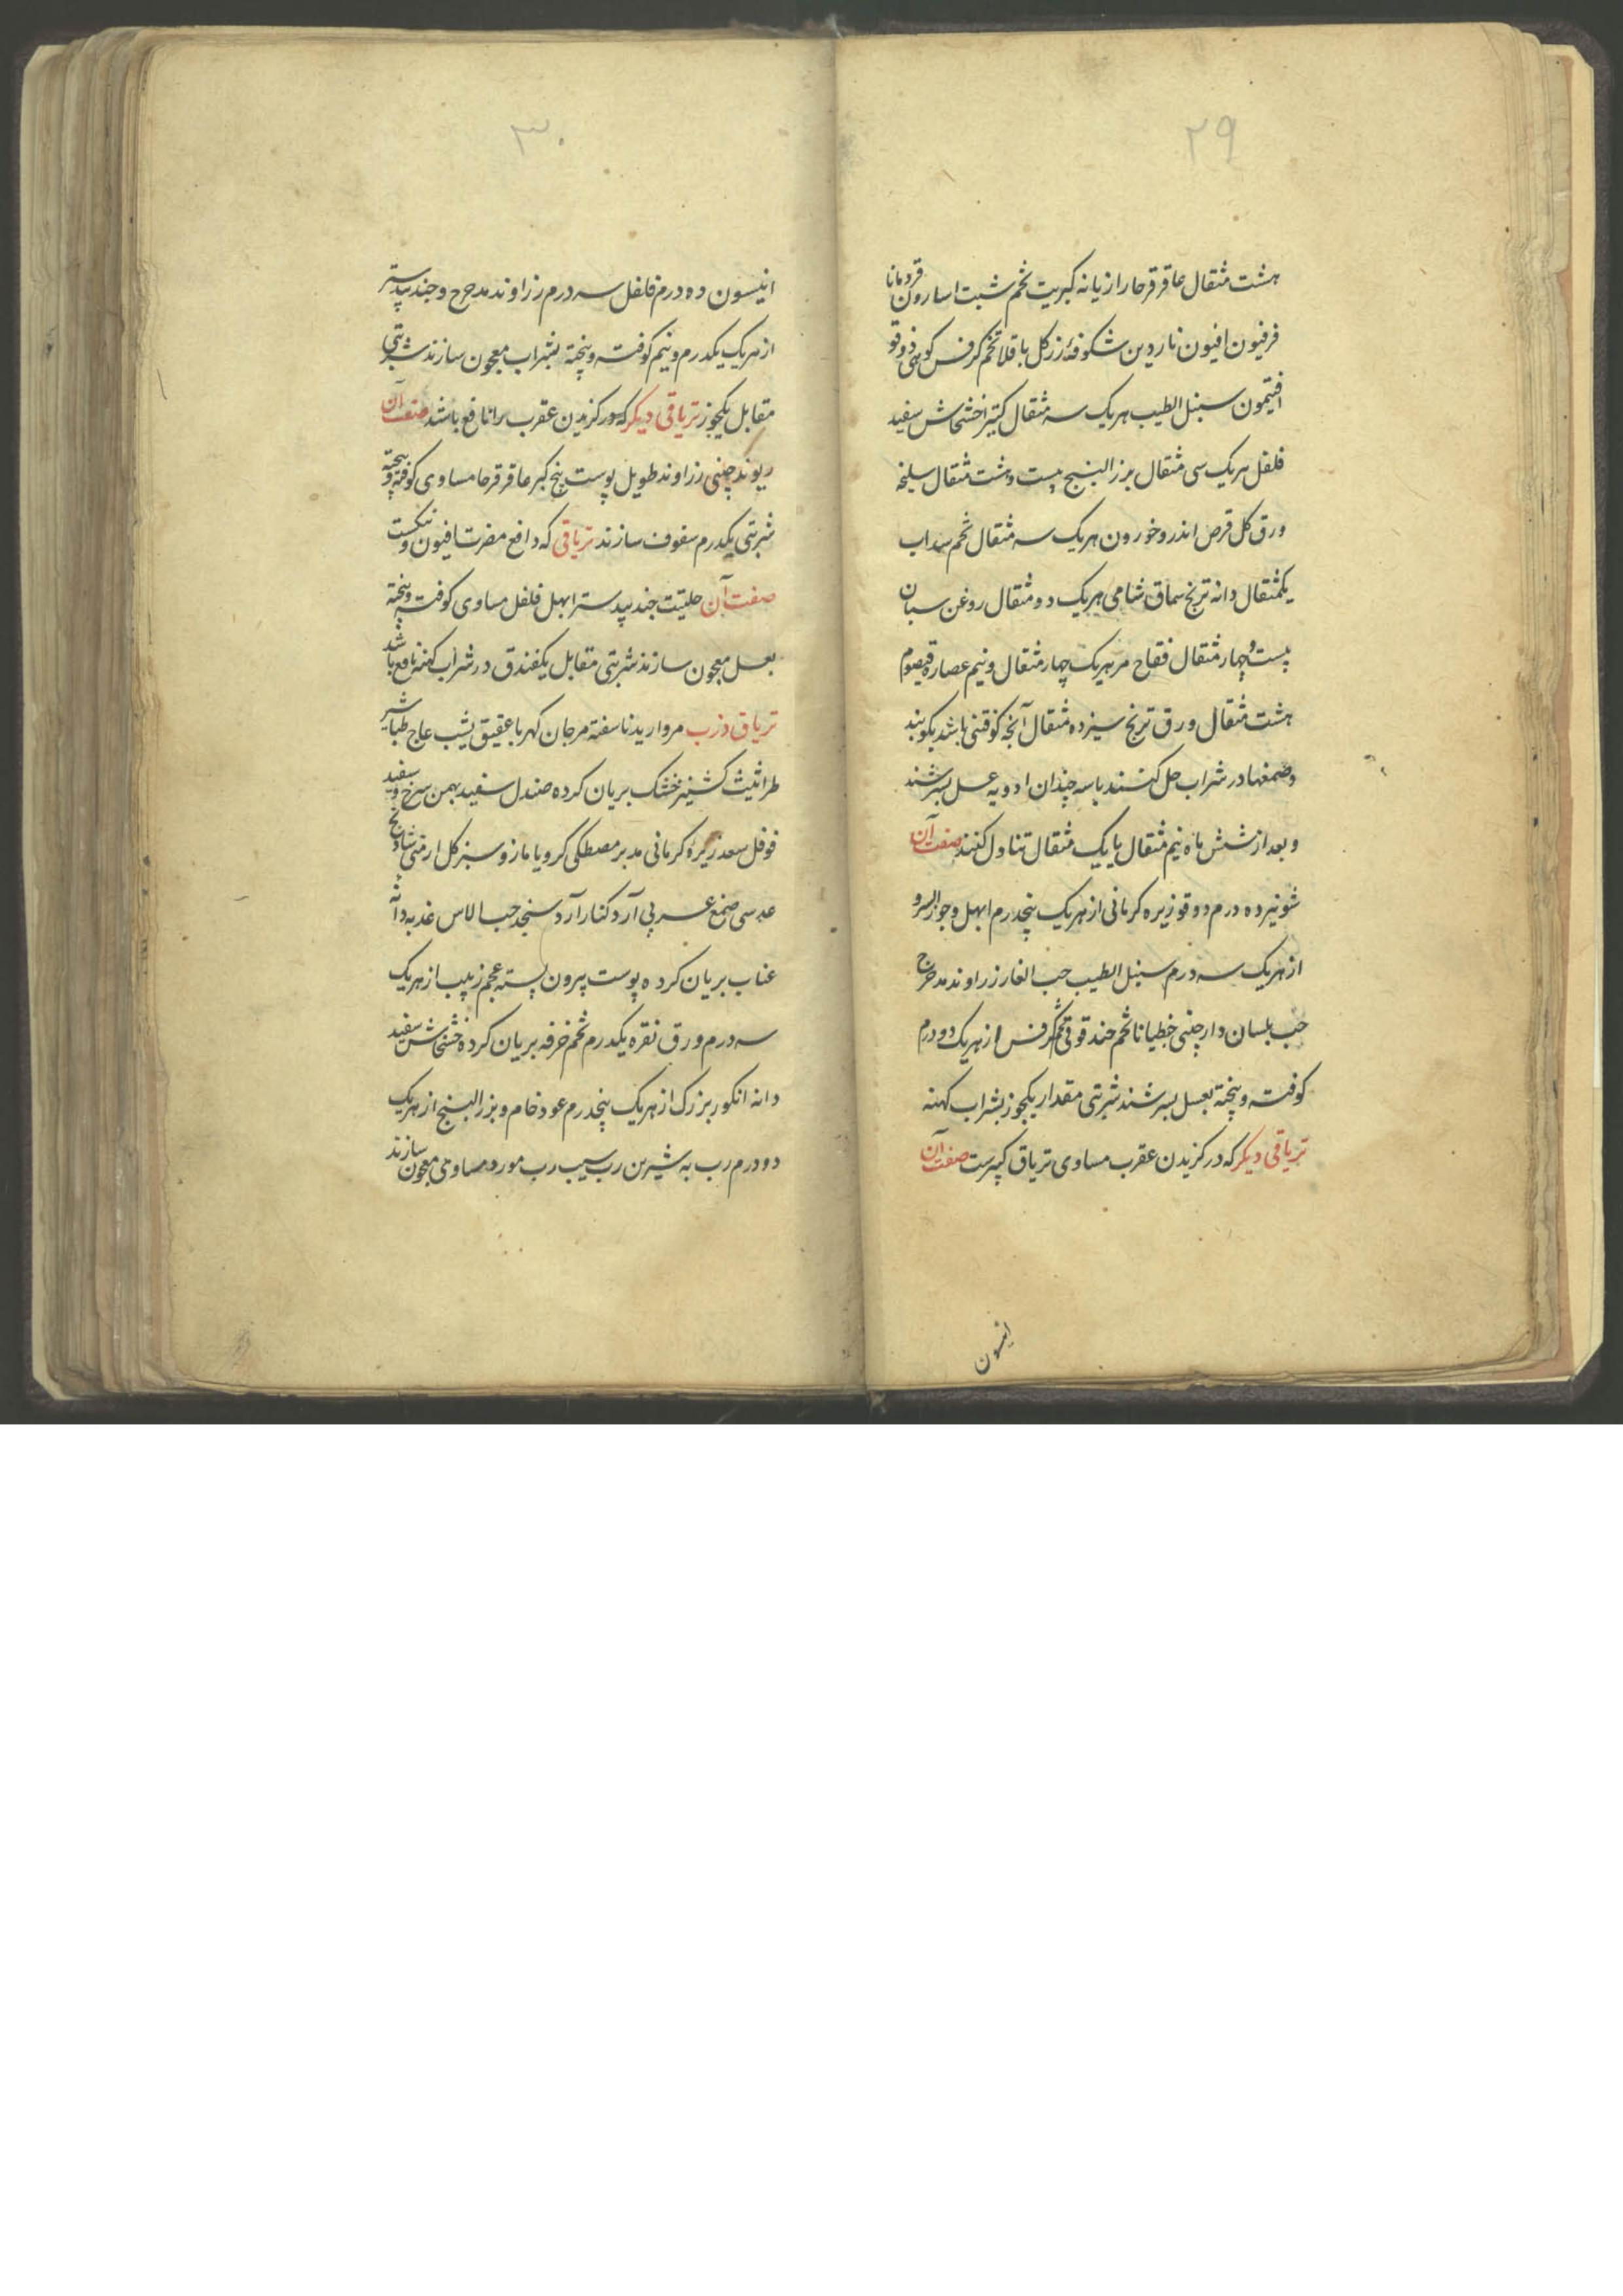 ۲۹
هشت مثقال عاقرقرحا رازیانه کبریت تخم شبت اسارون قردمانا
فرفیون افیون ناردین شکوفهٔ زرکل باقلا تخم کرفس کوهی دوقو
افتیمون سنبل الطیب هریک سه مثقال کتیرا خشخاش سفید
فلفل هریک سی مثقال بزرالبنج بیست و هشت مثقال سلیخه
ورق کل قرص اندروخورون هریک سه مثقال تخم سداب
یکمثقال دانه ترنج سماق شامی هریک دو مثقال روغن بلسان
بیست و چهار مثقال فقاح مر هریک چهار مثقال و نیم عصاره قیصوم
هشت مثقال ورق ترنج سیزده مثقال آنچه کوفتنی باشد بکوبند
و صمغها در شراب حل کنند با سه چندان ادویه عسل بسرشند
و بعد از شش ماه نیم مثقال یا یک مثقال تناول کنند صفت آن
شونیز ده درم دوقو زیره کرمانی از هریک پنجدرم ابهل و جوزالسرو
از هریک سه درم سنبل الطیب حب الغار زراوند مدحرج
حب بلسان دارچینی جنطیانا تخم حندقوقی تخم کرفس از هریک دو درم
کوفته و پیخته بعسل بسرشند شربتی مقدار یکجوز بشراب کهنه
تریاقی دیکر که در کزیدن عقرب مساوی تریاق کبیرست صفت آن
انیسون
۳۰
انیسون ده درم فلفل سه درم زراوند مدحرج و جندبیدستر
از هریک یکدرم و نیم کوفته و پیخته بشراب معجون سازند شربتی
مقابل یکجوز تریاقی دیکر که در کزیدن عقرب را نافع باشد صفت آن
ریوند چینی زراوند طویل پوست بیخ کبر عاقرقرحا مساوی کوفته و پیخته
شربتی یکدرم سفوف سازند تریاقی که دافع مضرت افیون و
صفت آن حلتیت جندبیدستر ابهل فلفل مساوی کوفته و پیخته
بعسل معجون سازند شربتی مقابل یکفندق در شراب کهنه نافع باشد
تریاق ذرب مروارید ناسفته مرجان کهربا عقیق یشب عاج طباشیر
طراثیث کشنیز خشک بریان کرده صندل سفید بهمن سرخ و سفید
فوفل سعد زیره کرمانی مدبر مصطکی کرویا مازو سبز کل ارمنی شادنج
عدسی صمغ عربی آرد کنار آرد سنجد حب الاس غذبه دانه
عناب بریان کرده پوست بیرون پسته عجم زبیب از هریک
سه درم ورق نقره یکدرم تخم خرفه بریان کرده خشخاش سفید
دانه انکور بزرک از هریک پنجدرم عود خام و بزرالبنج از هریک
دو درم رب به شیرین رب سیب رب مورد مساوی معجون سازند